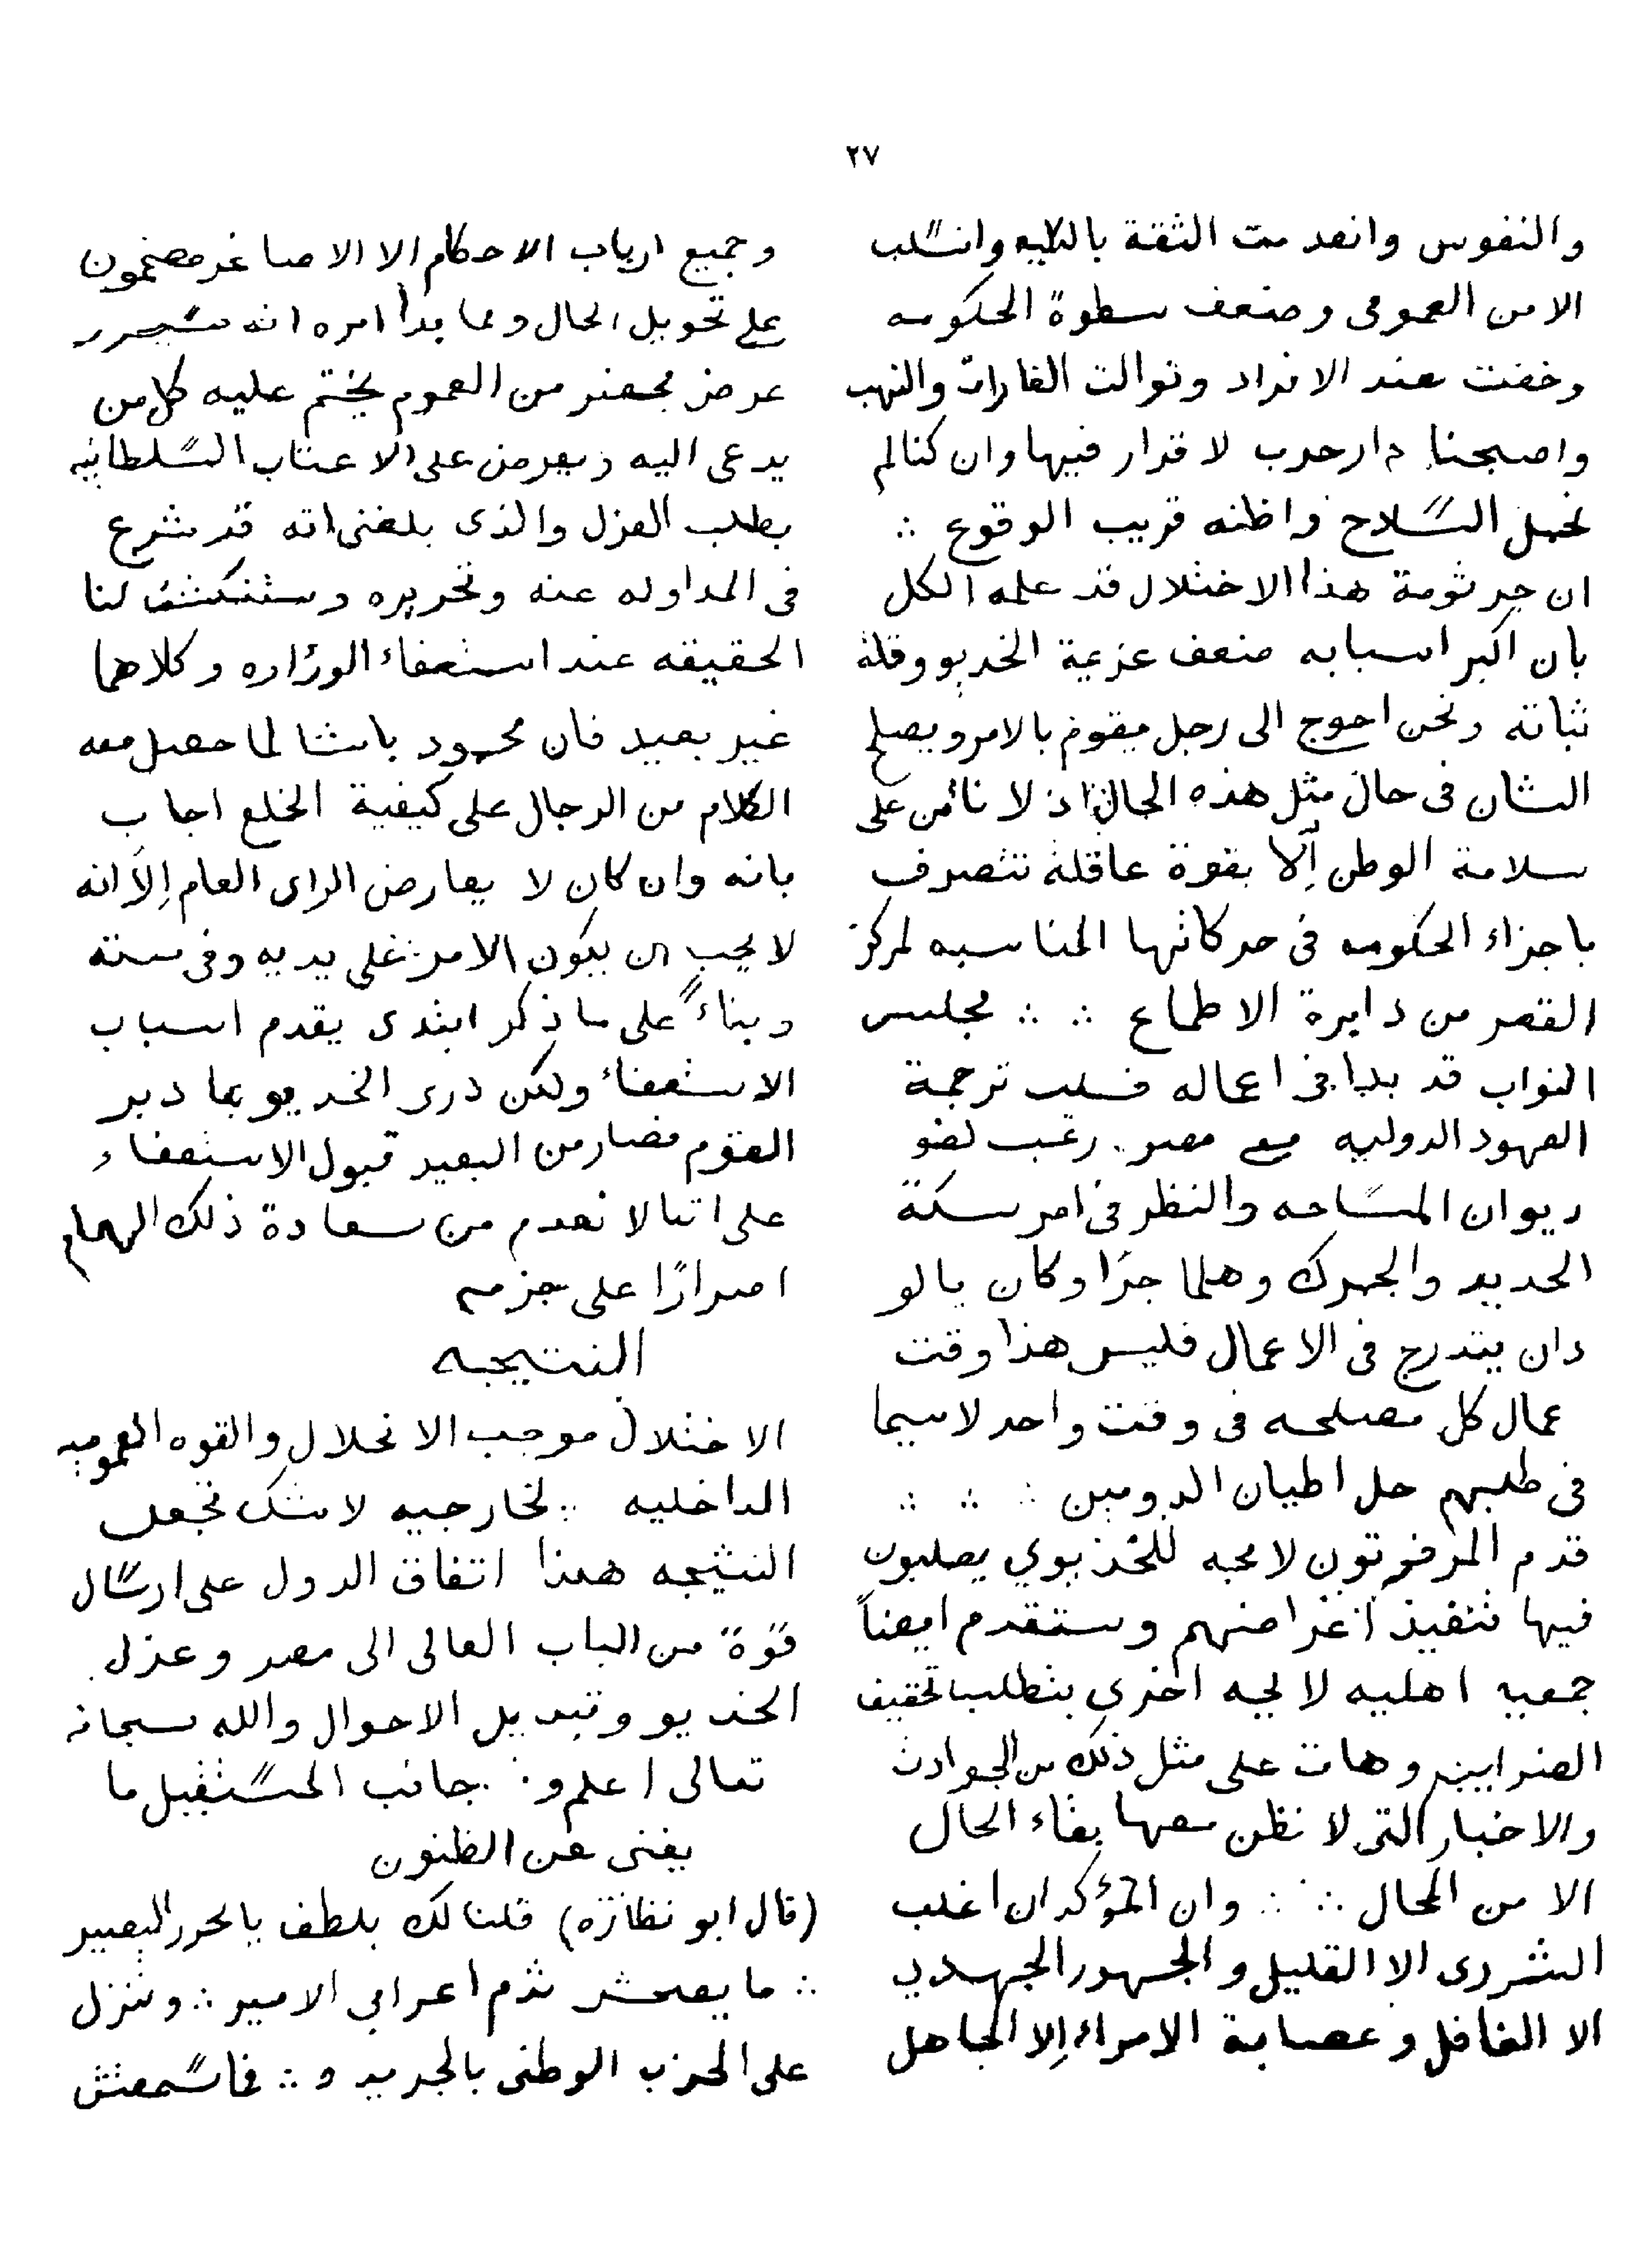 ٢٧
والنفوس وانعدمت الثقة بالكليه وانسلب
الامن العمومى وضعف سطوة الحكومه
وخفت عند الافراد وتوالت الغارات والنهب
واصبحنا دار حرب لا قرار فيها وان كنا لم
نحمل السلاح واظنه قريب الوقوع ∴
ان جرثومة هذا الاختلال قد علمه الكل
بان اكبر اسبابه ضعف عزيمة الخديو وقلة
ثباته ونحن احوج الى رجل يقوم بالامر ويصلح
الشان فى حال مثل هذه الحال اذ لا نأمن على
سلامة الوطن إلا بقوة عاقلة تتصرف
باجزاء الحكومه فى حركاتها المناسبه لمركز
القصر من دايرة الاطماع ∴ ∴ مجلس
النواب قد بدا فى اعماله فـلب ترجمة
العهود الدوليه مع مصر. رغب لغو
ديوان المساحه والنظر فى امر سكة
الحديد والجمرك وهلما جرّا وكان بالو
دان يتدرج فى الاعمال فليس هذا وقت
عمال كل مصلحه فى وقت واحد لاسيما
فى طلبهم حل اطيان الدومين ∴ ∴ ∴
قدم المرفوتون لايحه للخديوي يصلبون
فيها تنفيذ اغراضهم وستقدم ايضاً
جمعيه اهليه لايحه اخرى بتطلب تخفيف
الضرايب وهات على مثل ذلك من الحوادث
والاخبار التى لا نظن معها بقاء الحال
الا من المحال ∴ ∴ وان المؤكد ان اغلب
الشررى الا القليل والجمهور الجهدي
الا الغافل وعصابة الامراء إلا الجاهل
وجميع ارباب الاحكام الا الاصاغر مصممون
على تحويل الحال ومما بدأ امره انه سيحرر
عرض محضر من العموم يختم عليه كل من
يدعى اليه ويعرض على الاعتاب السلطانيه
بطلب العزل والذى بلغنى انه قد شرع
فى المداوله عنه وتحريره وستنكشف لنا
الحقيقه عند استعفاء الوزاره وكلاهما
غير بعيد فان محمود باشا لما حصل معه
الكلام من الرجال على كيفية الخلع اجاب
بانه وان كان لا يعارض الراى العام إلا انه
لا يجب ان يكون الامر على يديه وفى سنته
وبناءً على ما ذكر ابتدى يقدم اسباب
الاستعفاء ولكن درى الخديو بما دبر
القوم فصار من البعيد قبول الاستعفاء
على اننا لا نعدم من سعادة ذلك الهمام
اصرارًا على عزمه
النتيجه
الاختلال موجب الانحلال والقوه العموميه
الداخليه لخارجيه لا شك تجعل
النتيجه هكذا اتفاق الدول على ارسال
قوّة من الباب العالى الى مصر وعزل
الخديو وتبديل الاحوال والله سبحانه
تعالى اعلم و∴ جانب المستقبل ما
يغنى عن الظنون
(قال ابو نظارة) قلنا لك بلطف يا محرر التبعيير
∴ ما يصحش تذم اعرابي الامير ∴ وتنزل
على الحزب الوطنى بالجريد و ∴ فاسمعتش